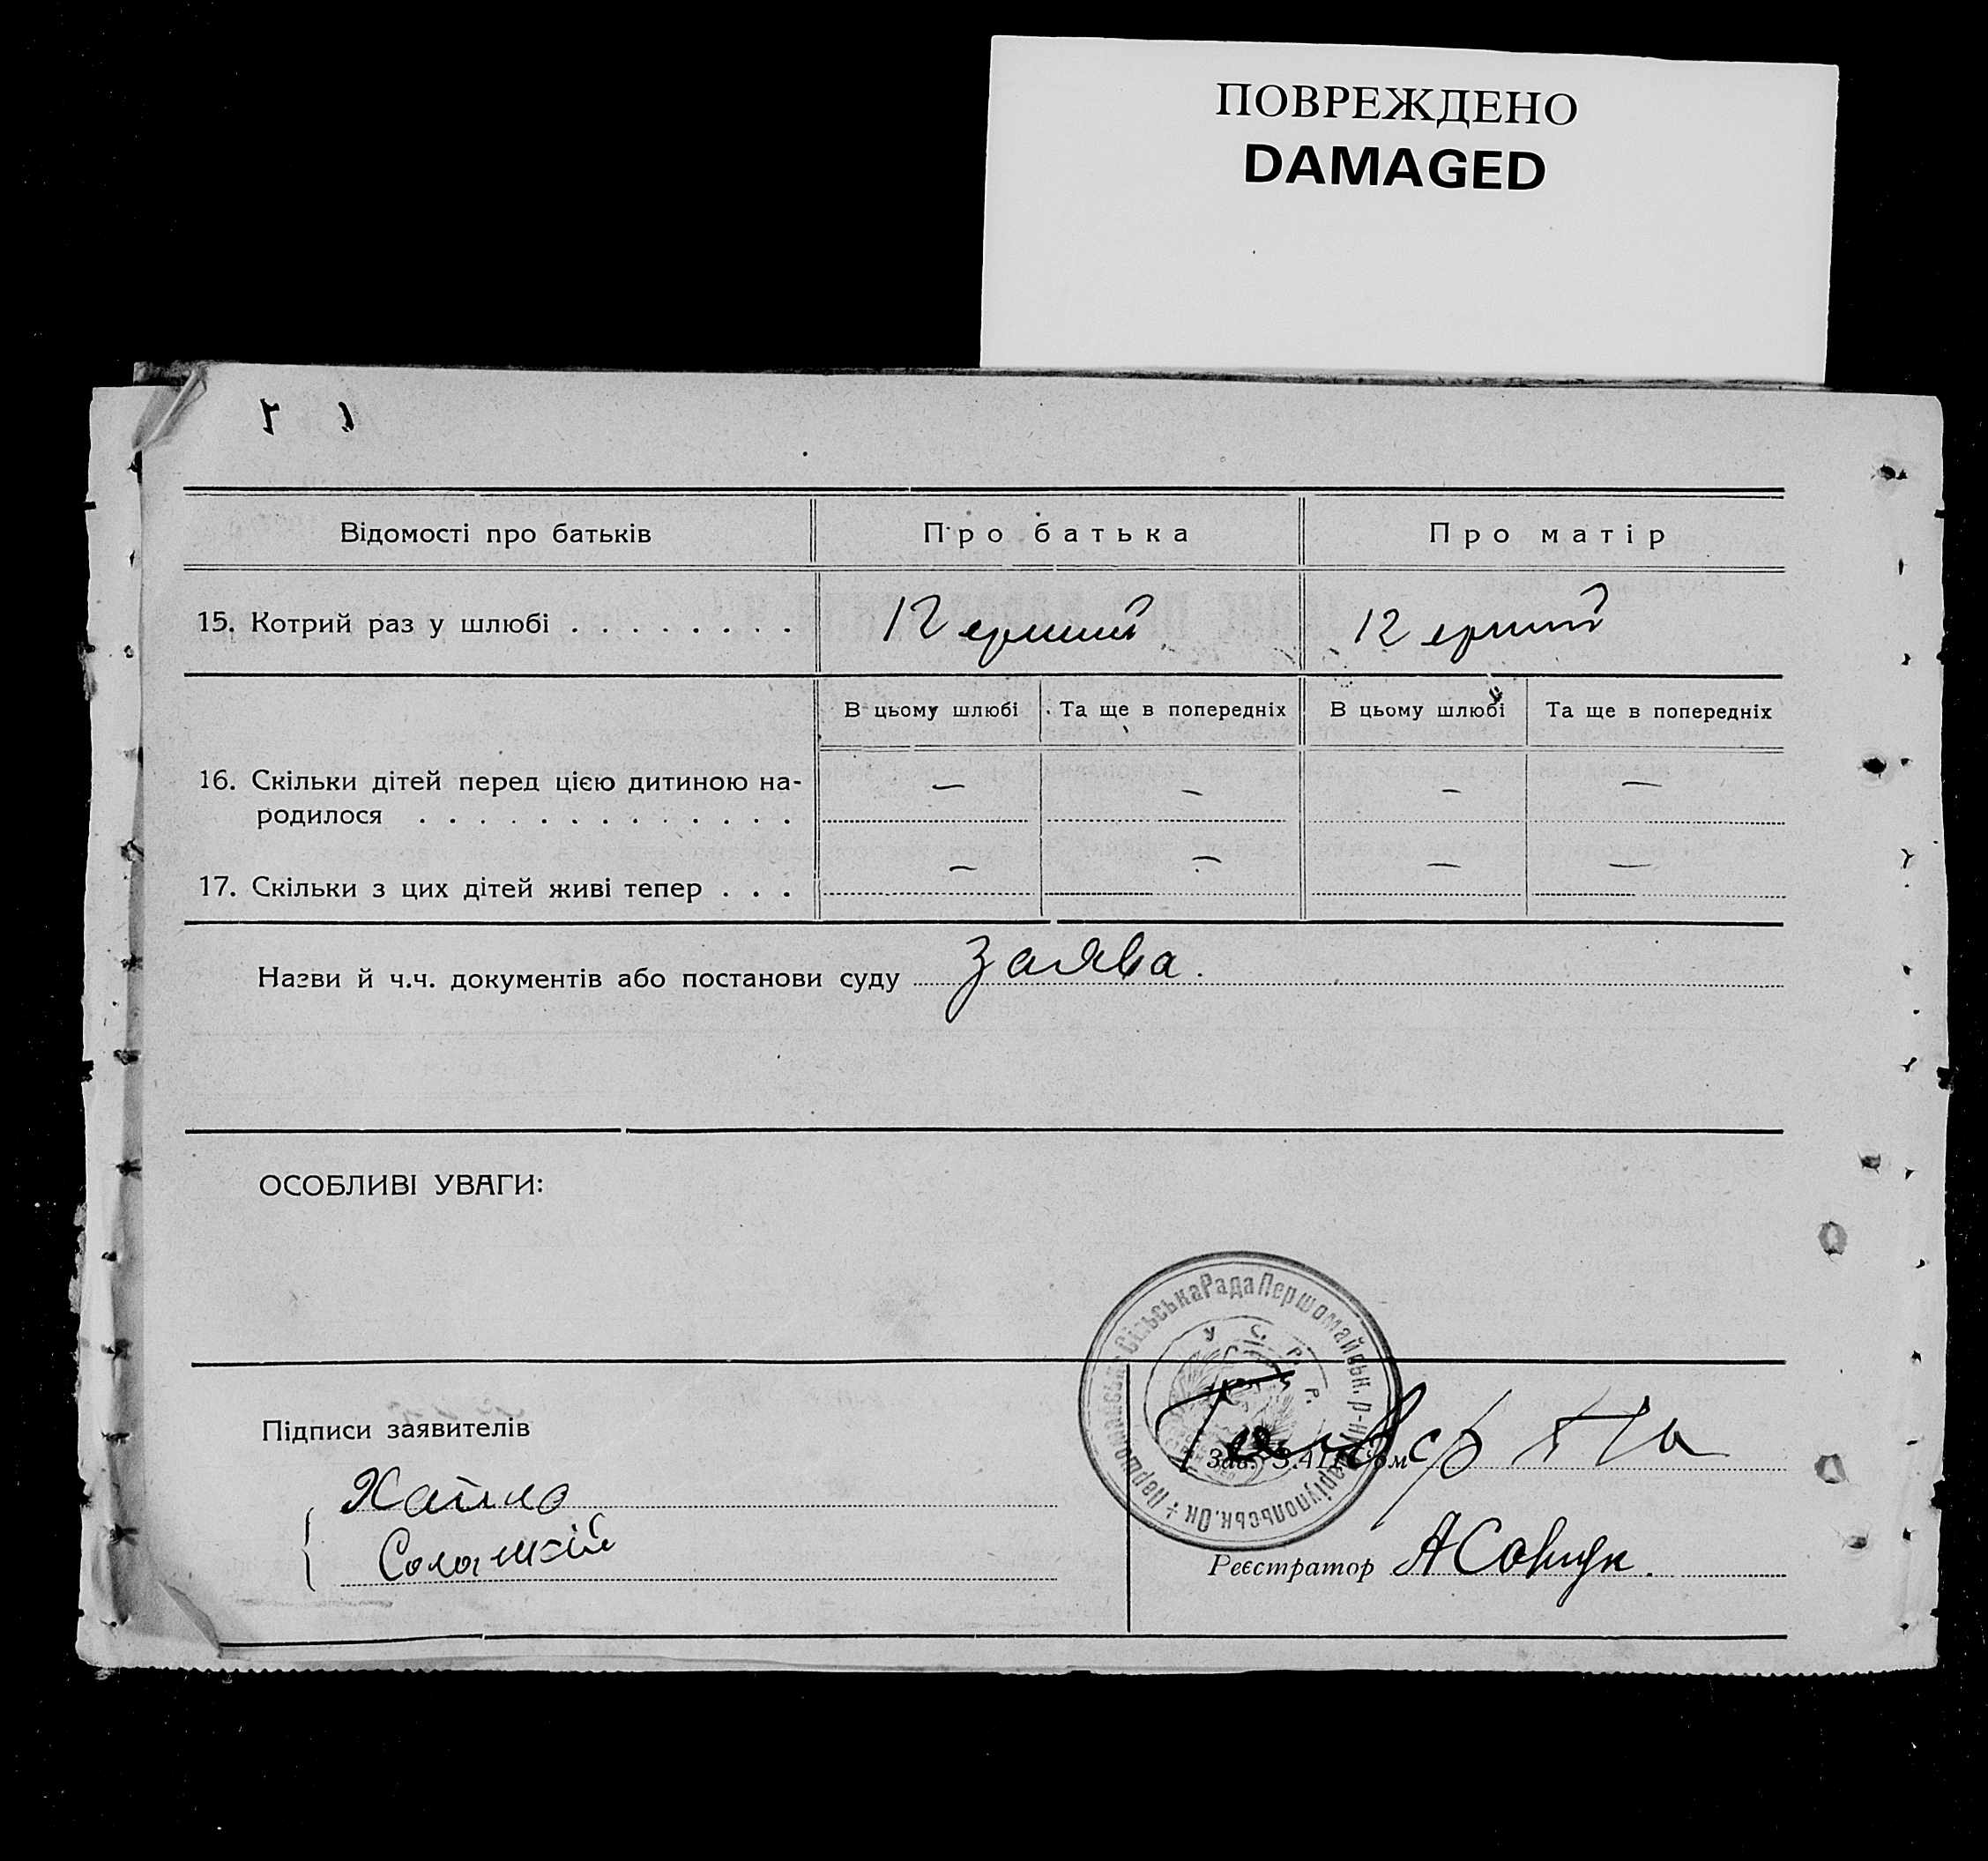 ПОВРЕЖДЕНО
DAMAGED
Відомості про батьків Про батька Про матір
15. Котрий раз у шлюбі . . . . . . . . Перший Перший
В цьому шлюбі Та ще в попередніх В цьому шлюбі Та ще в попередніх
16. Скільки дітей перед цією дитиною на- — — — —
родилося . . . . . . . . . . . . .
17. Скільки з цих дітей живі тепер . . . — — — —
Назви й ч.ч. документів або постанови суду заява.
ОСОБЛИВІ УВАГИ:
Сільська Рада Першомайськ. р-ну Маріупольськ. Ок
У. С. Р. Р.
Підписи заявителів
Зав. ЗАГС'ом
Хайло
Реєстратор